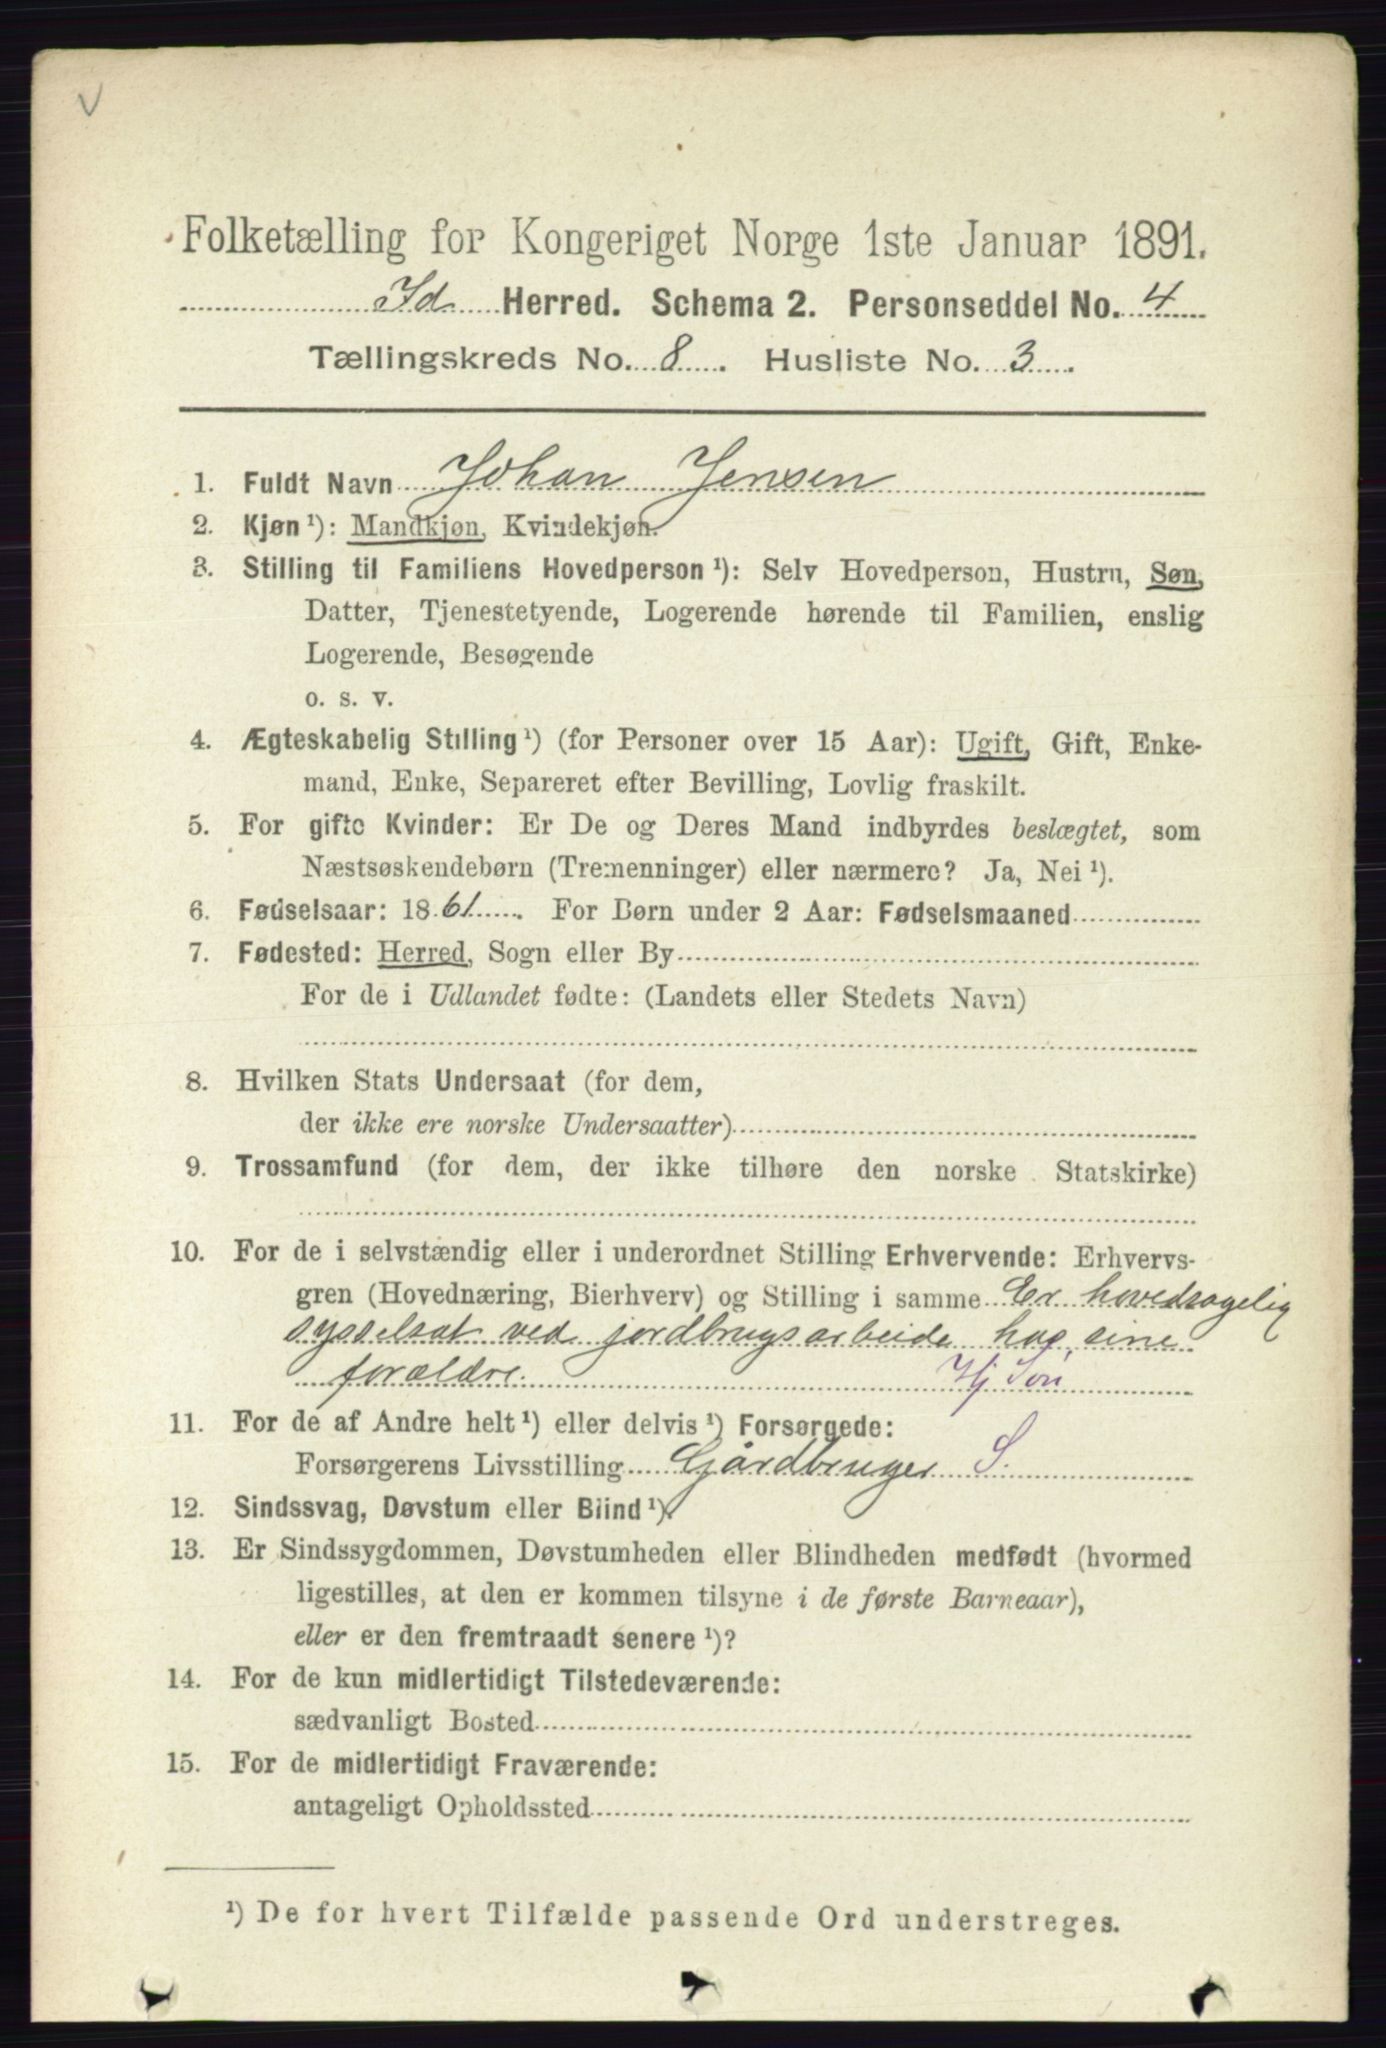 V
Folketælling for Kongeriget Norge 1ste Januar 1891.
Id Herred. Schema 2. Personseddel No. 4
Tællingskreds No. 8. Husliste No. 3.
1. Fuldt Navn Johan Jensen
2. Kjøn¹): Mandkjøn, Kvindekjøn.
3. Stilling til Familiens Hovedperson¹): Selv Hovedperson, Hustru, Søn,
Datter, Tjenestetyende, Logerende hørende til Familien, enslig
Logerende, Besøgende
o. s. v.
4. Ægteskabelig Stilling¹) (for Personer over 15 Aar): Ugift, Gift, Enke-
mand, Enke, Separeret efter Bevilling, Lovlig fraskilt.
5. For gifte Kvinder: Er De og Deres Mand indbyrdes beslægtet, som
Næstsøskendebørn (Tremenninger) eller nærmere? Ja, Nei¹).
6. Fødselsaar: 1861. For Børn under 2 Aar: Fødselsmaaned
7. Fødested: Herred, Sogn eller By
For de i Udlandet fødte: (Landets eller Stedets Navn)
8. Hvilken Stats Undersaat (for dem,
der ikke ere norske Undersaatter)
9. Trossamfund (for dem, der ikke tilhøre den norske Statskirke)
10. For de i selvstændig eller i underordnet Stilling Erhvervende: Erhvervs-
gren (Hovednæring, Bierhverv) og Stilling i samme Er hovedsagelig
sysselsat ved jordbrugsarbeide hos sine
forældre. Hj Søn
11. For de af Andre helt¹) eller delvis¹) Forsørgede:
Forsørgerens Livsstilling Gårdbruger S.
12. Sindssvag, Døvstum eller Blind¹).
13. Er Sindssygdommen, Døvstumheden eller Blindheden medfødt (hvormed
ligestilles, at den er kommen tilsyne i de første Barneaar),
eller er den fremtraadt senere¹)?
14. For de kun midlertidigt Tilstedeværende:
sædvanligt Bosted
15. For de midlertidigt Fraværende:
antageligt Opholdssted
¹) De for hvert Tilfælde passende Ord understreges.